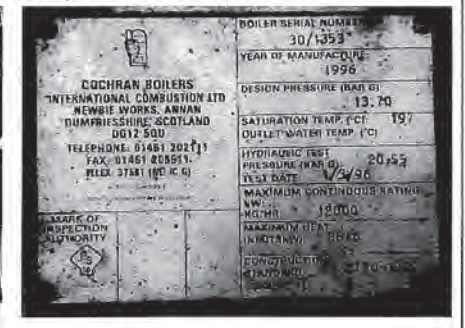 COCHRAN BOILERS
INTERNATIONAL COMBUSTION LTD
NEWBIE WORKS, ANNAN
DUMFRIESSHIRE, SCOTLAND
DG12 5QU
TELEPHONE: 01461 202111
FAX: 01461 205511
MARK OF
INSPECTION
AUTHORITY
BOILER SERIAL NUMBER
30/1353
YEAR OF MANUFACTURE
1996
DESIGN PRESSURE (BAR G)
13.70
SATURATION TEMP. (°C) 197
OUTLET WATER TEMP. (°C)
HYDRAULIC TEST
PRESSURE (BAR G): 20,55
TEST DATE: /96
MAXIMUM CONTINUOUS RATING
KW:
KG/HR: 12000
MAXIMUM HEAT
CONSTRUCTION
STANDARD